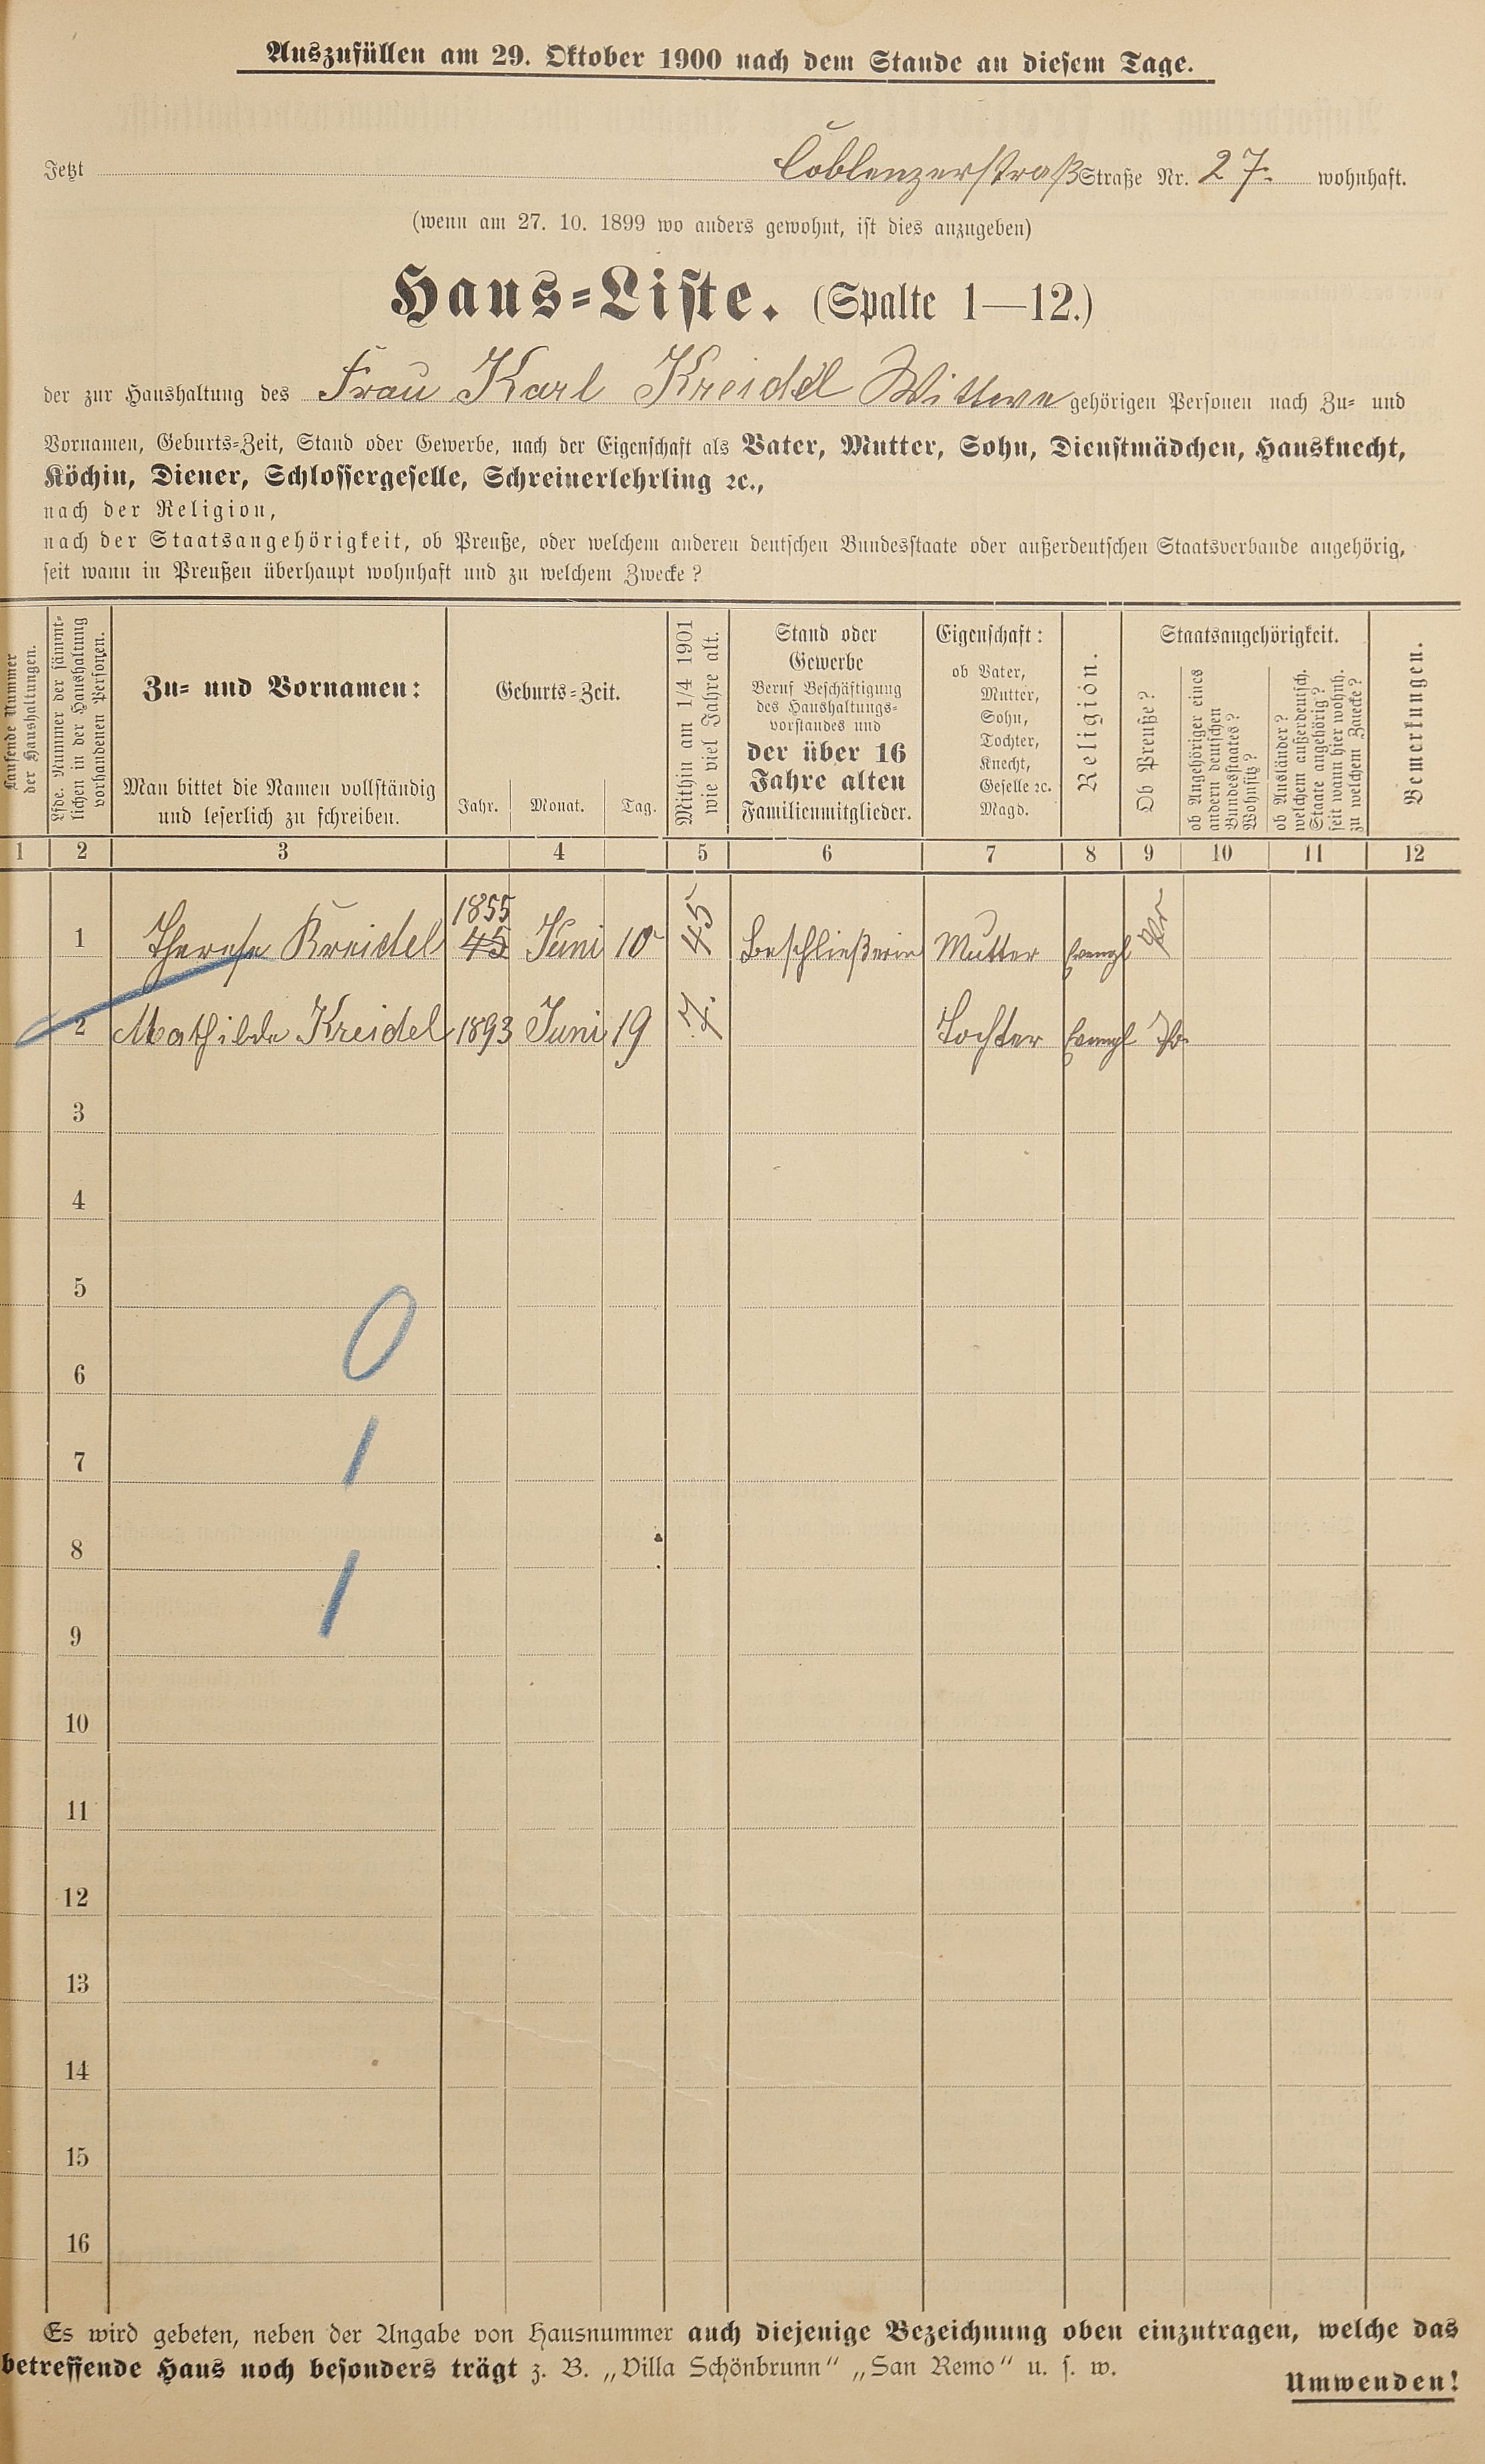 Auszufüllen am 29. Oktober 1900 nach dem Stande an diesem Tage.
Jetzt Coblenzerstraß Straße Nr. 27. wohnhaft.
(wenn am 27. 10. 1899 wo anders gewohnt, ist dies anzugeben)
Haus-Liste. (Spalte 1—12.)
der zur Haushaltung des Frau Karl Kreidel Wittwe gehörigen Personen nach Zu- und
Vornamen, Geburts-Zeit, Stand oder Gewerbe, nach der Eigenschaft als Vater, Mutter, Sohn, Dienstmädchen, Hausknecht,
Köchin, Diener, Schlossergeselle, Schreinerlehrling ꝛc.,
nach der Religion,
nach der Staatsangehörigkeit, ob Preuße, oder welchem anderen deutschen Bundesstaate oder außerdeutschen Staatsverbande angehörig,
seit wann in Preußen überhaupt wohnhaft und zu welchem Zwecke?
Laufende Nummer
der Haushaltungen.
Lfde. Nummer der sämmt-
lichen in der Haushaltung
vorhandenen Personen.
Zu- und Vornamen:
Man bittet die Namen vollständig
und leserlich zu schreiben.
Geburts-Zeit.
Jahr. Monat. Tag.
Mithin am 1/4 1901
wie viel Jahre alt.
Stand oder
Gewerbe
Beruf Beschäftigung
des Haushaltungs-
vorstandes und
der über 16
Jahre alten
Familienmitglieder.
Eigenschaft:
ob Vater,
Mutter,
Sohn,
Tochter,
Knecht,
Geselle ꝛc.
Magd.
Religion.
Staatsangehörigkeit.
Ob Preuße?
ob Angehöriger eines
andern deutschen
Bundesstaates?
Wohnsitz?
ob Ausländer?
welchem außerdeutsch.
Staate angehörig?
seit wann hier wohnh.
zu welchem Zwecke?
Bemerkungen.
1 2 3 4 5 6 7 8 9 10 11 12
1855
1 Therese Kreidel 45 Juni 10 45 Beschließerin Mutter Evengl Pr
2 Mathilde Kreidel 1893 Juni 19 7. Tochter Evengl
3
4
5
0
6
1
7
8
1
9
10
11
12
13
14
15
16
Es wird gebeten, neben der Angabe von Hausnummer auch diejenige Bezeichnung oben einzutragen, welche das
betreffende Haus noch besonders trägt z. B. „Villa Schönbrunn“ „San Remo“ u. s. w.
Umwenden!